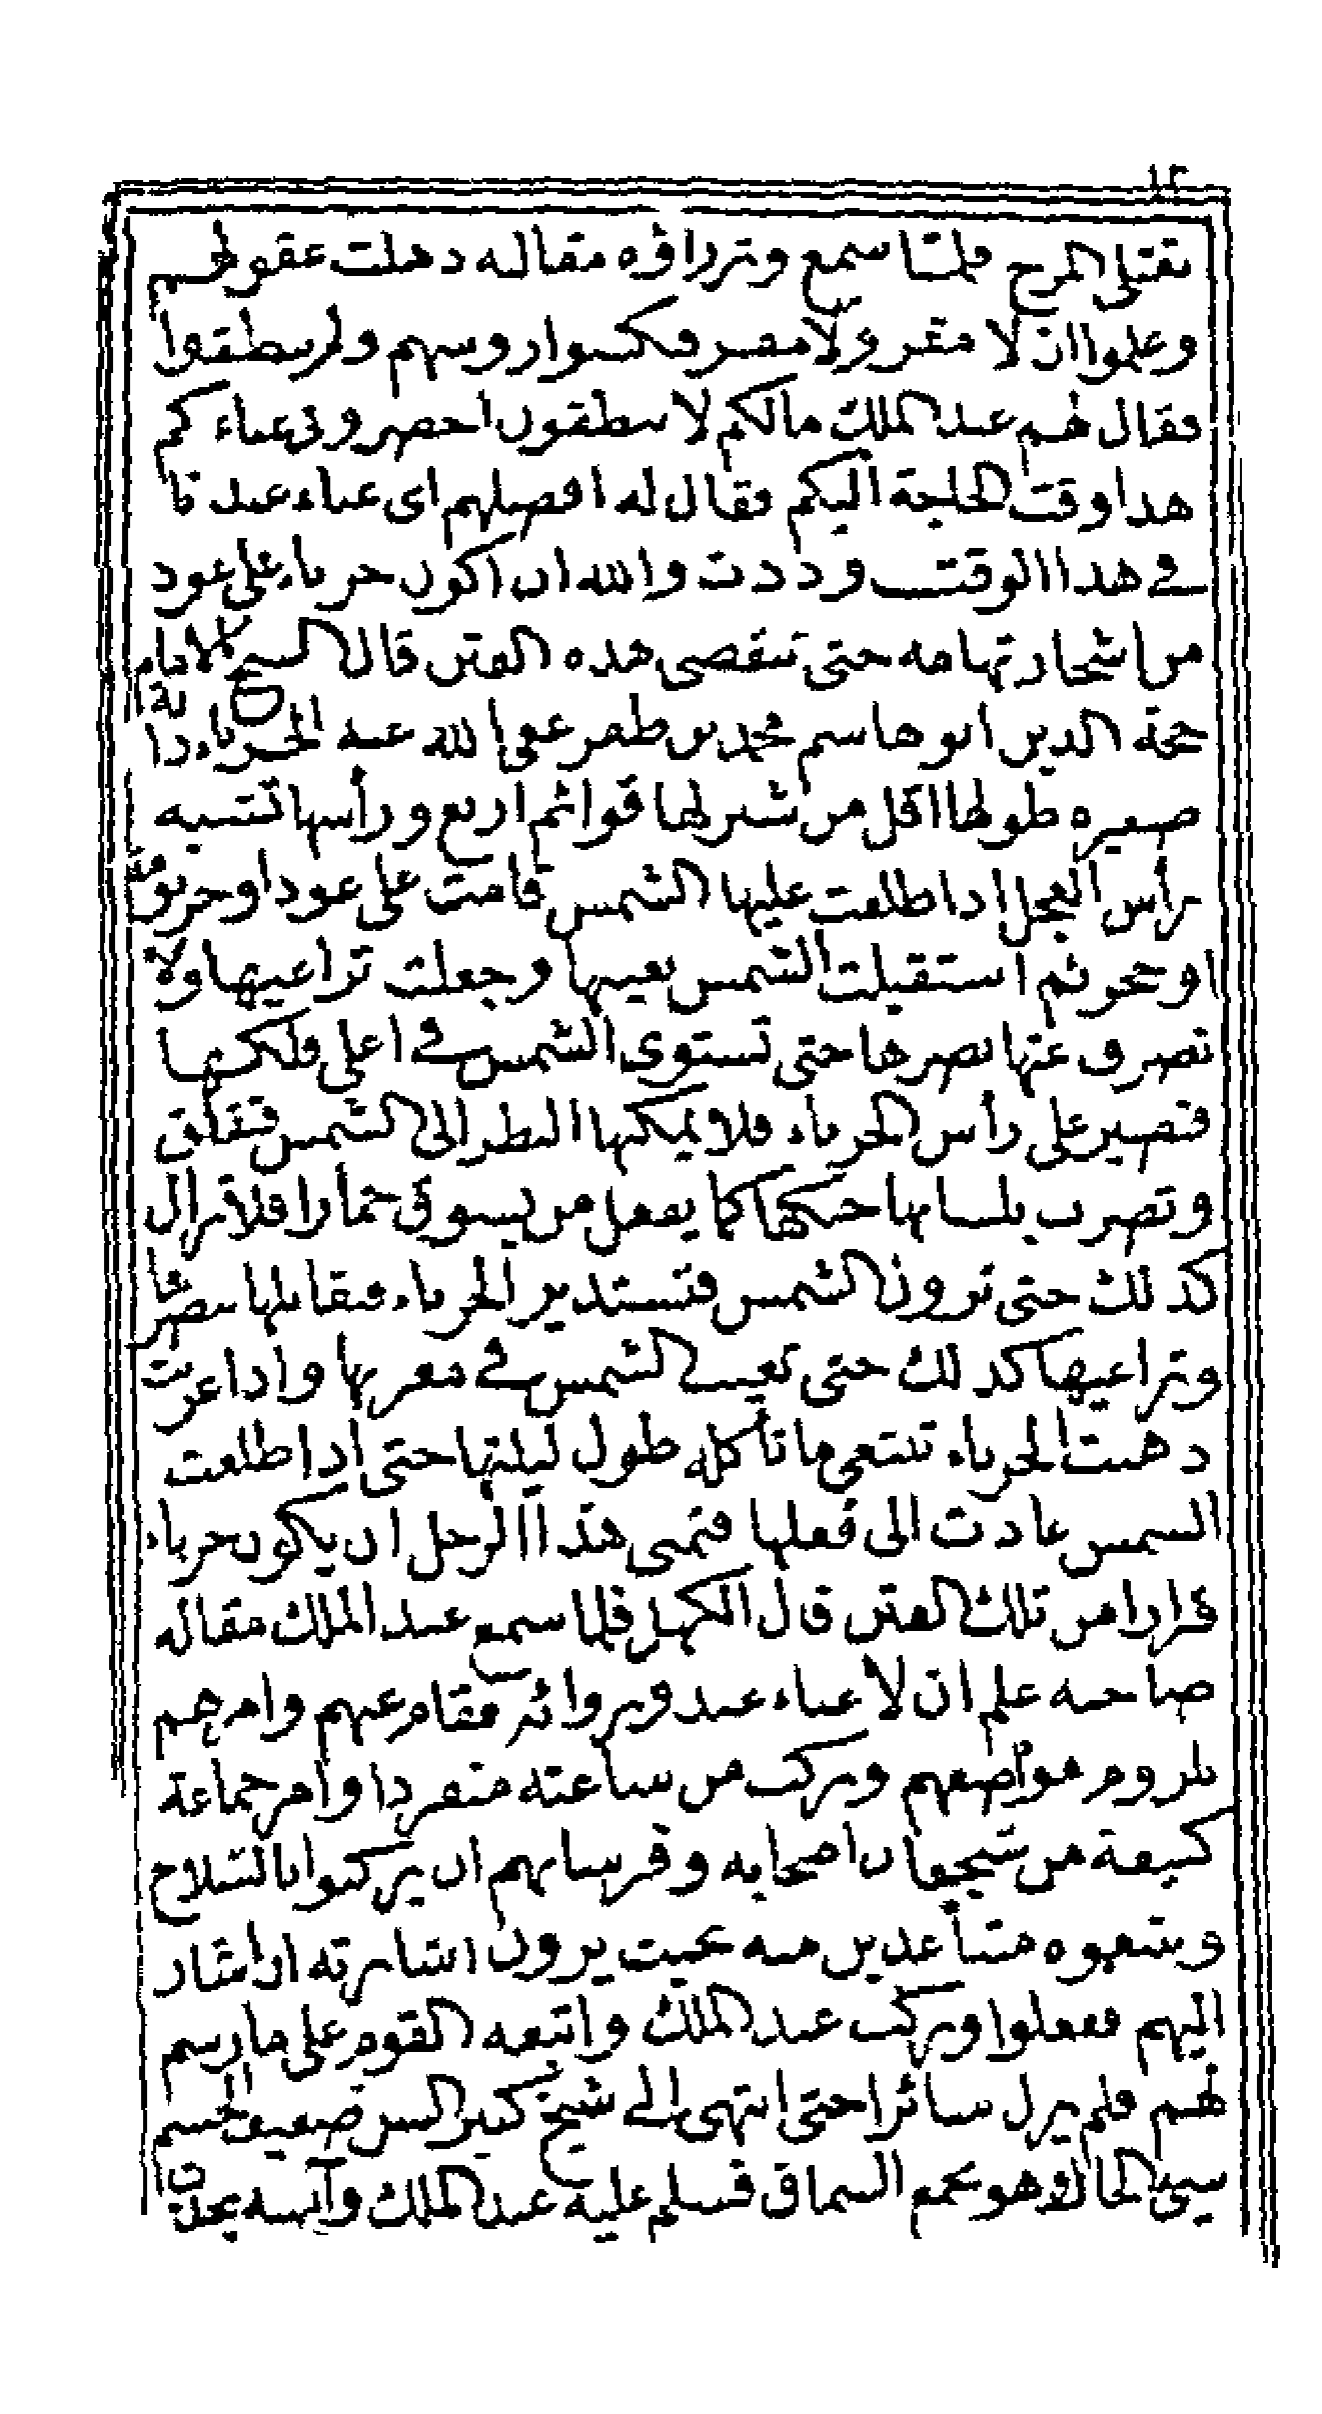 ١٢
تقتلى المرج فلتا سمع وزراؤه مقاله دهلت عقولهم
وعلموا ان لا مقر ولا مفر فنكسوا روسهم ولم ينطقوا
فقال لهم عبد الملك مالكم لا تنطقون احضروني غناء كم
هذا وقت الحاجة اليكم فقال له افضلهم اى غناء عندنا
في هذا الوقت وددت والله ان اكون حرباء على عود
من اشجار تهامه حتى تنقضى هذه الفتن قال الشيخ الامام
حجة الدين ابو هاشم محمد بن ظفر عفى الله عنه الحرباء دابة
صغيره طولها اقل من شبر لها قوائم اربع ورأسها تشبه
رأس العجل اذا طلعت عليها الشمس قامت على عود او جرثومة
او حجر ثم استقبلت الشمس بعينها وجعلت تراعيها ولا
تصرف عنها بصرها حتى تستوى الشمس في اعلى فلكها
فتصير على رأس الحرباء فلا يمكنها النظر الى الشمس فتقلق
وتضرب بلسانها حنكها كما يفعل من يسوق حمارا فلا تزال
كذلك حتى تزول الشمس فتستدير الحرباء فتقابلها ببصرها
وتراعيها كذلك حتى تغيب الشمس في مغربها واذا غربت
ذهبت الحرباء تبتغى ما تأكله طول ليلتها حتى اذا طلعت
الشمس عادت الى فعلها فتمنى هذا الرجل ان يكون حرباء
فرارا من تلك الفتن قال الكهل فلما سمع عبد الملك مقاله
صاحبه علم ان لا غناء عند وزرائه فقام عنهم وامرهم
بلزوم مواضعهم وركب من ساعته منفردا وامر جماعة
كثيفة من شجعان اصحابه وفرسانهم ان يركبوا بالسلاح
ويتبعوه متباعدين منه بحيث يرون اشارته اذا اشار
اليهم ففعلوا وركب عبد الملك واتبعه القوم على ما رسم
لهم فلم يزل سائرا حتى انتهى الى شيخ كبير السن ضعيف الجسم
سيئ الحال وهو يجمع السماق فسلم عليه عبد الملك وآنسه بحديث